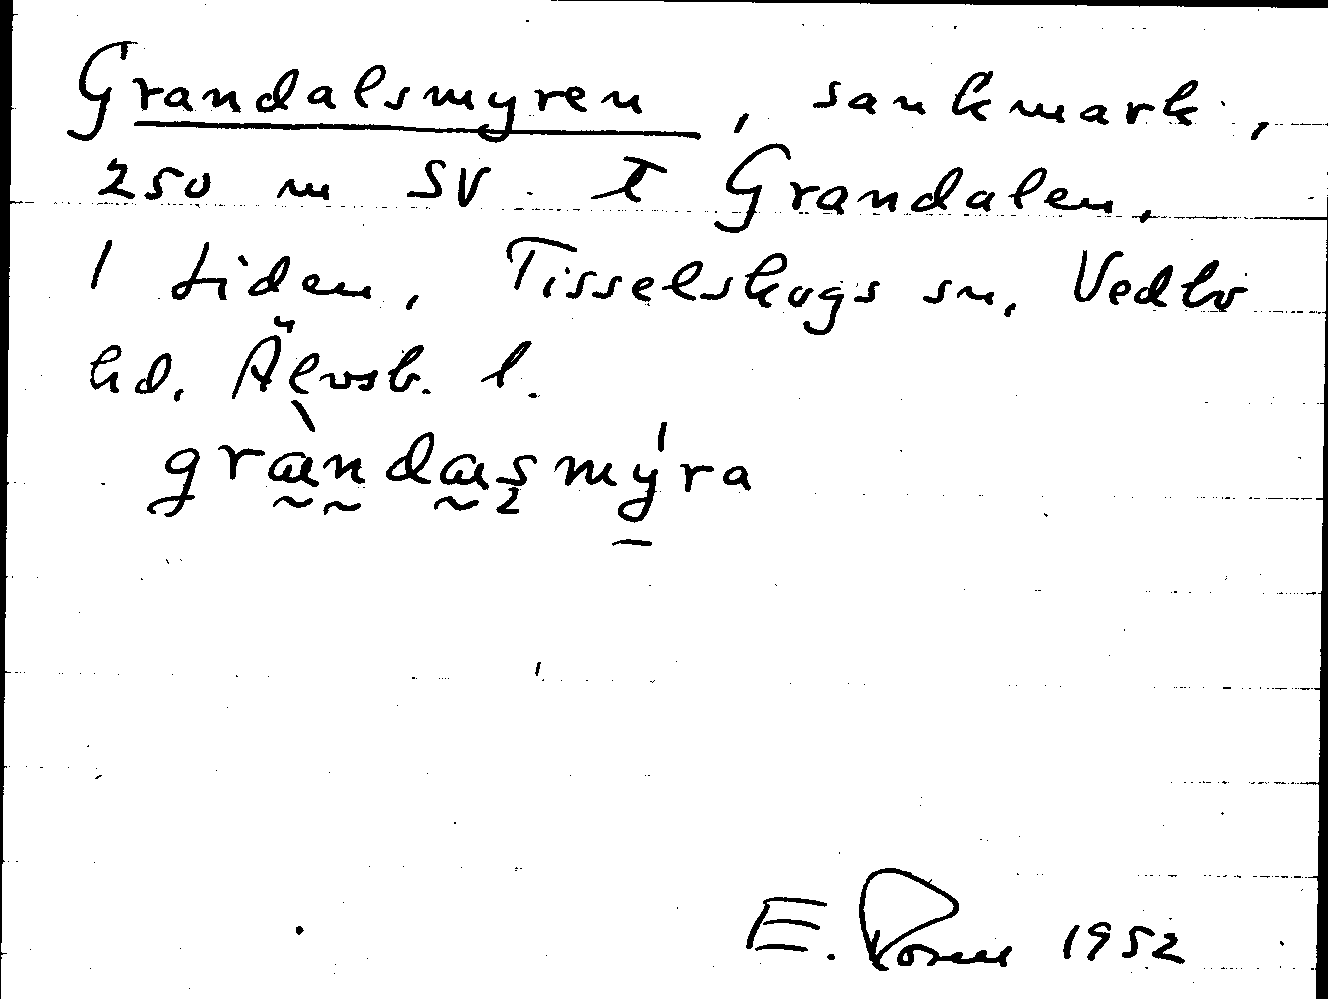 Grandalsmyren, sankmark,
250 m SV. T Grandalen,
1 Liden, Tisselskogs sn, Vedbo
hd. Älvsb. l.
gràndasmýra
E. 1952